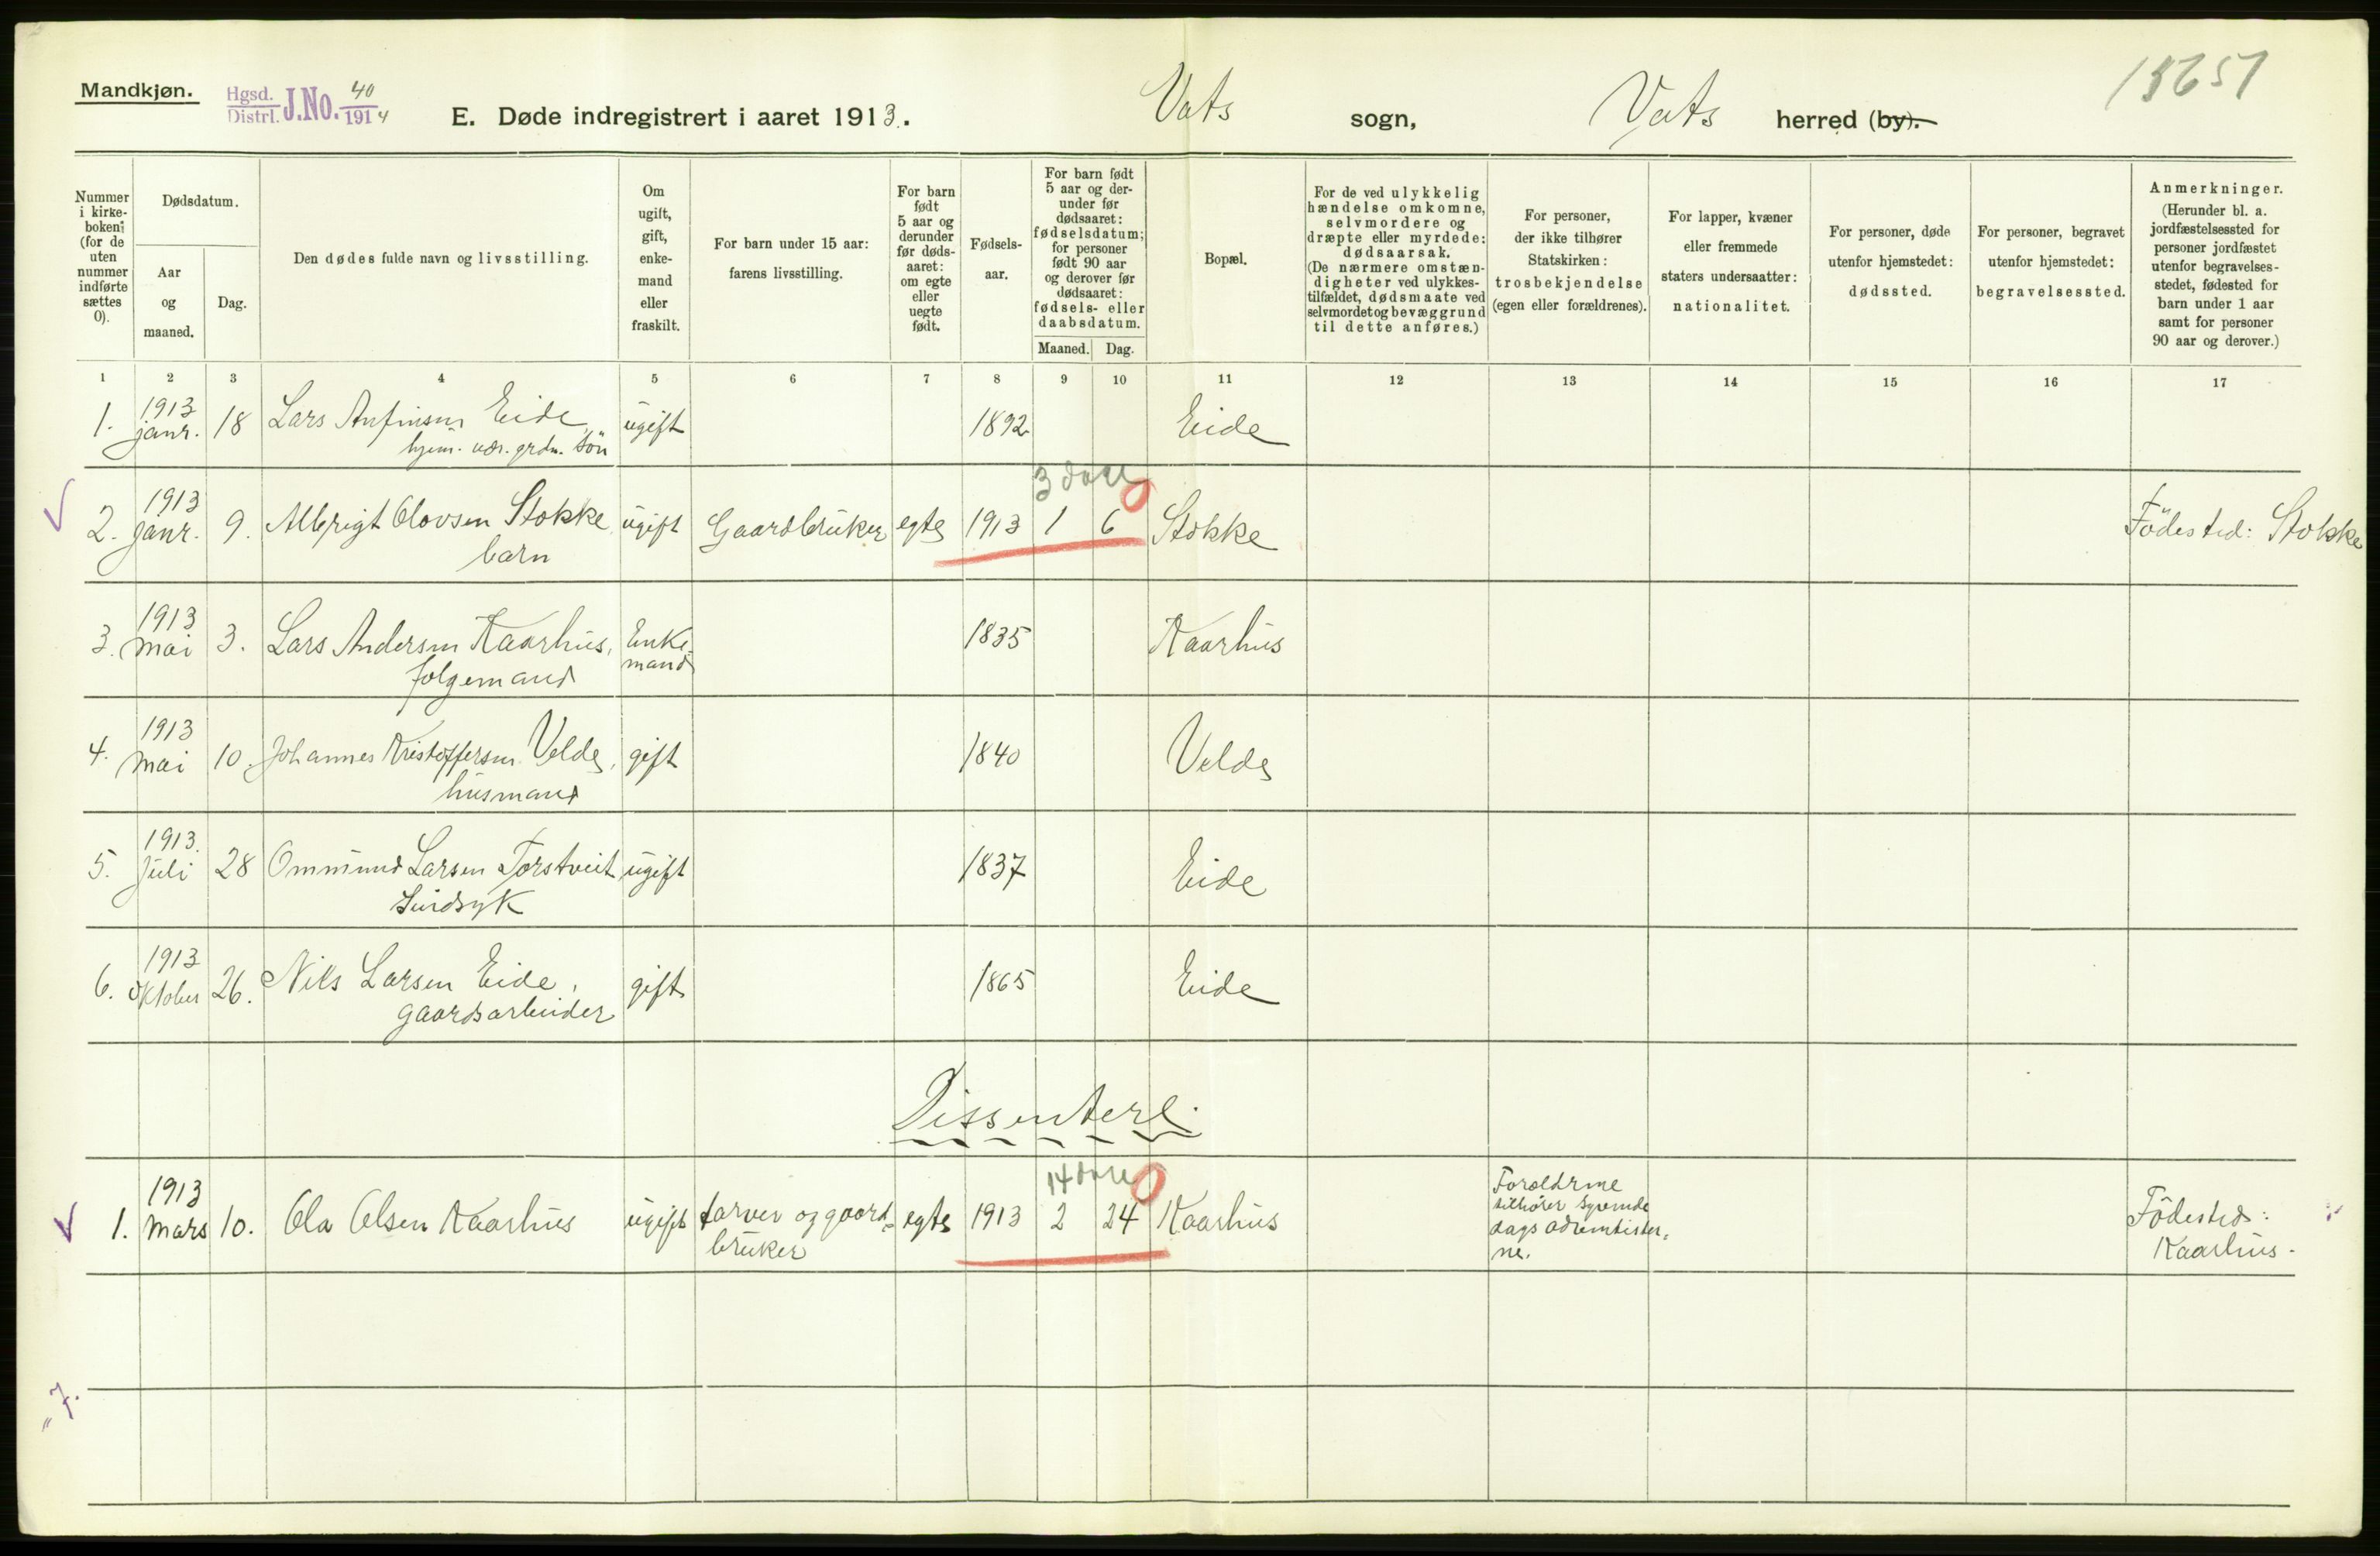 Mandkjøn.
Hgsd. Distrl. J.No. 40/1914
E. Døde indregistrert i aaret 1913. Vats sogn, Vats herred (by).
15651
Nummer i kirkeboken (for de uten nummer indførte sættes 0).
Dødsdatum.
Aar og maaned.
Dag.
Den dødes fulde navn og livsstilling.
Om ugift, gift, enkemand eller fraskilt.
For barn under 15 aar: farens livsstilling.
For barn født 5 aar og derunder før dødsaaret: om egte eller uegte født.
Fødselsaar.
For barn født 5 aar og derunder før dødsaaret: fødselsdatum; for personer født 90 aar og derover før dødsaaret: fødsels- eller daabsdatum.
Maaned. Dag.
Bopæl.
For de ved ulykkelig hændelse omkomne, selvmordere og dræpte eller myrdede: dødsaarsak. (De nærmere omstændigheter ved ulykkestilfældet, dødsmaate ved selvmordet og bevæggrund til dette anføres.)
For personer, der ikke tilhører Statskirken: trosbekjendelse (egen eller forældrenes).
For lapper, kvæner eller fremmede staters undersaatter: nationalitet.
For personer, døde utenfor hjemstedet: dødssted.
For personer, begravet utenfor hjemstedet: begravelsessted.
Anmerkninger. (Herunder bl. a. jordfæstelsessted for personer jordfæstet utenfor begravelsesstedet, fødested for barn under 1 aar samt for personer 90 aar og derover.)
1 2 3 4 5 6 7 8 9 10 11 12 13 14 15 16 17
1. 1913 janr. 18 Lars Anfinsen Eide, ugift 1892 Eide
hjem. vær. grdm. søn
3 dage 0
2. 1913 janr. 9. Albrigt Olovsen Stokke ugift Gaardbruker egte 1913 1 6 Stokke Fødested: Stokke
barn
3. 1913 mai 3. Lars Andersen Kaarhus, Enkemand 1835 Kaarhus
folgemand
4. 1913 mai 10. Johannes Kristoffersen Velde, gift 1840 Velde
husmand
5. 1913. Juli 28 Ommund Larsen Torstveit ugift 1837 Eide
Sindsyk
6. 1913 oktober 26. Nils Larsen Eide, gift 1865 Eide
gaardsarbeider
Dissentere.
14 dage 0
1. 1913 mars 10. Ola Olsen Kaarhus ugift farver og gaard-bruker egte 1913 2 24 Kaarhus Forældrene tilhører syvende dags adventisterne. Fødested: Kaarhus.
" 7.